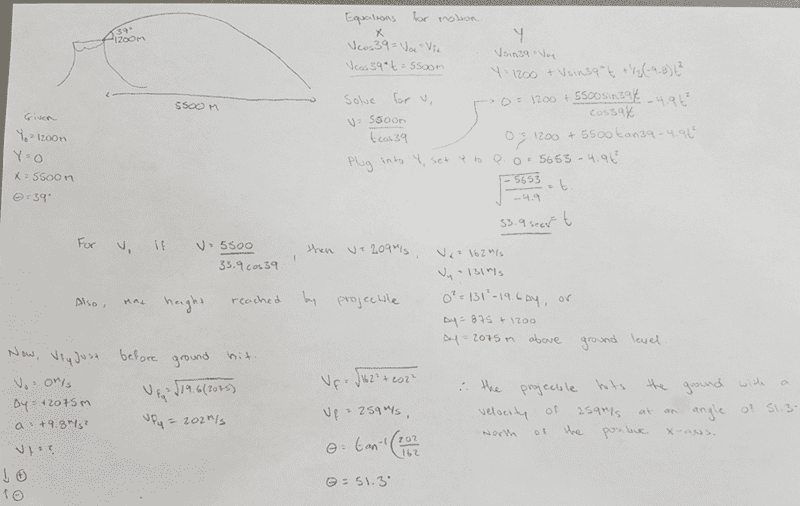 39°
1200m
5500 M
Given
Y₀=1200m
Y=0
X=5500m
θ=39°
Equations for motion
X
Vcos39=V₀ₓ=Vfₓ
Vcos39°t=5500m
Solve for V,
V= 5500m
tcos39
Plug into Y, set Y to 0.
Y
Vsin39=V₀y
Y=1200 + Vsin39°t +½(-9.8)t²
0= 1200 + 5500sin39t - 4.9t²
cos39t
0= 1200 + 5500tan39 - 4.9t²
0= 5653 - 4.9t²
√-5653 = t
-4.9
33.9 secs = t
For V, if V= 5500 , then V=209m/s, Vₓ= 162m/s
33.9cos39
Vy=131m/s
Also, max height reached by projectile
0²=131²-19.6Δy, or
Δy= 875 + 1200
Δy= 2075 m above ground level
Now, Vfy just before ground hit.
V₀= 0m/s
Δy= +2075m
a= +9.8m/s²
Vf=?
↓ ⊕
↑ ⊖
Vfy=√19.6(2075)
Vfy= 202m/s
Vf= √162²+202²
Vf= 259m/s,
θ= tan⁻¹(202
162
θ= 51.3°
∴ the projectile hits the ground with a
velocity of 259m/s at an angle of 51.3°
North of the positive x-axis.